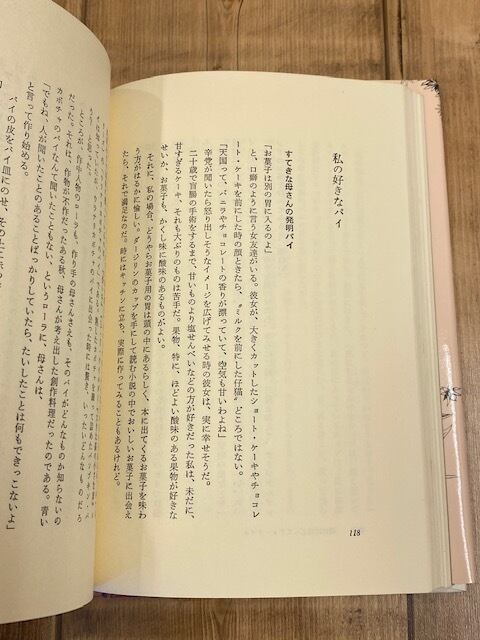 私の好きなパイ
すてきな母さんの発明パイ
「お菓子は別の胃に入るのよ」
と、口癖のように言う女友達がいる。彼女が、大きくカットしたショート・ケーキやチョコレ
ート・ケーキを前にした時の顔ときたら、〝ミルクを前にした仔猫〟どころではない。
「天国って、バニラやチョコレートの香りが漂っていて、空気も甘いわよね」
辛党が聞いたら怒り出しそうなイメージを広げてみせる時の彼女は、実に幸せそうだ。
二十歳で盲腸の手術をするまで、甘いものより塩せんべいなどの方が好きだった私は、未だに、
甘すぎるケーキ、それも大ぶりのものは苦手だ。果物、特に、ほどよい酸味のある果物が好きな
せいか、お菓子も、かくし味に酸味のあるものがよい。
それに、私の場合、どうやらお菓子用の胃は頭の中にあるらしく、本に出てくるお菓子を味わ
う方がはるかに愉しい。ダージリンのカップを手にして読む小説の中でおいしいお菓子に出会え
たら、それで満足なのだ。時にはキッチンに立ち、実際に作ってみることもあるけれど。
118
ところが、作中人物のローラも、作り手の母さんさえも、そのパイがどんなものか知らないの
だった。それは、作物が不作だったある秋、母さんが考え出した創作料理だったのである。青い
カボチャのパイなんて聞いたこともない、というローラに、母さんは、
「でもね、人が聞いたことのあることばっかりしていたら、たいしたことは何もできっこないよ」
と言って作り始める。
パイの皮をパイ皿にのせ、その上に